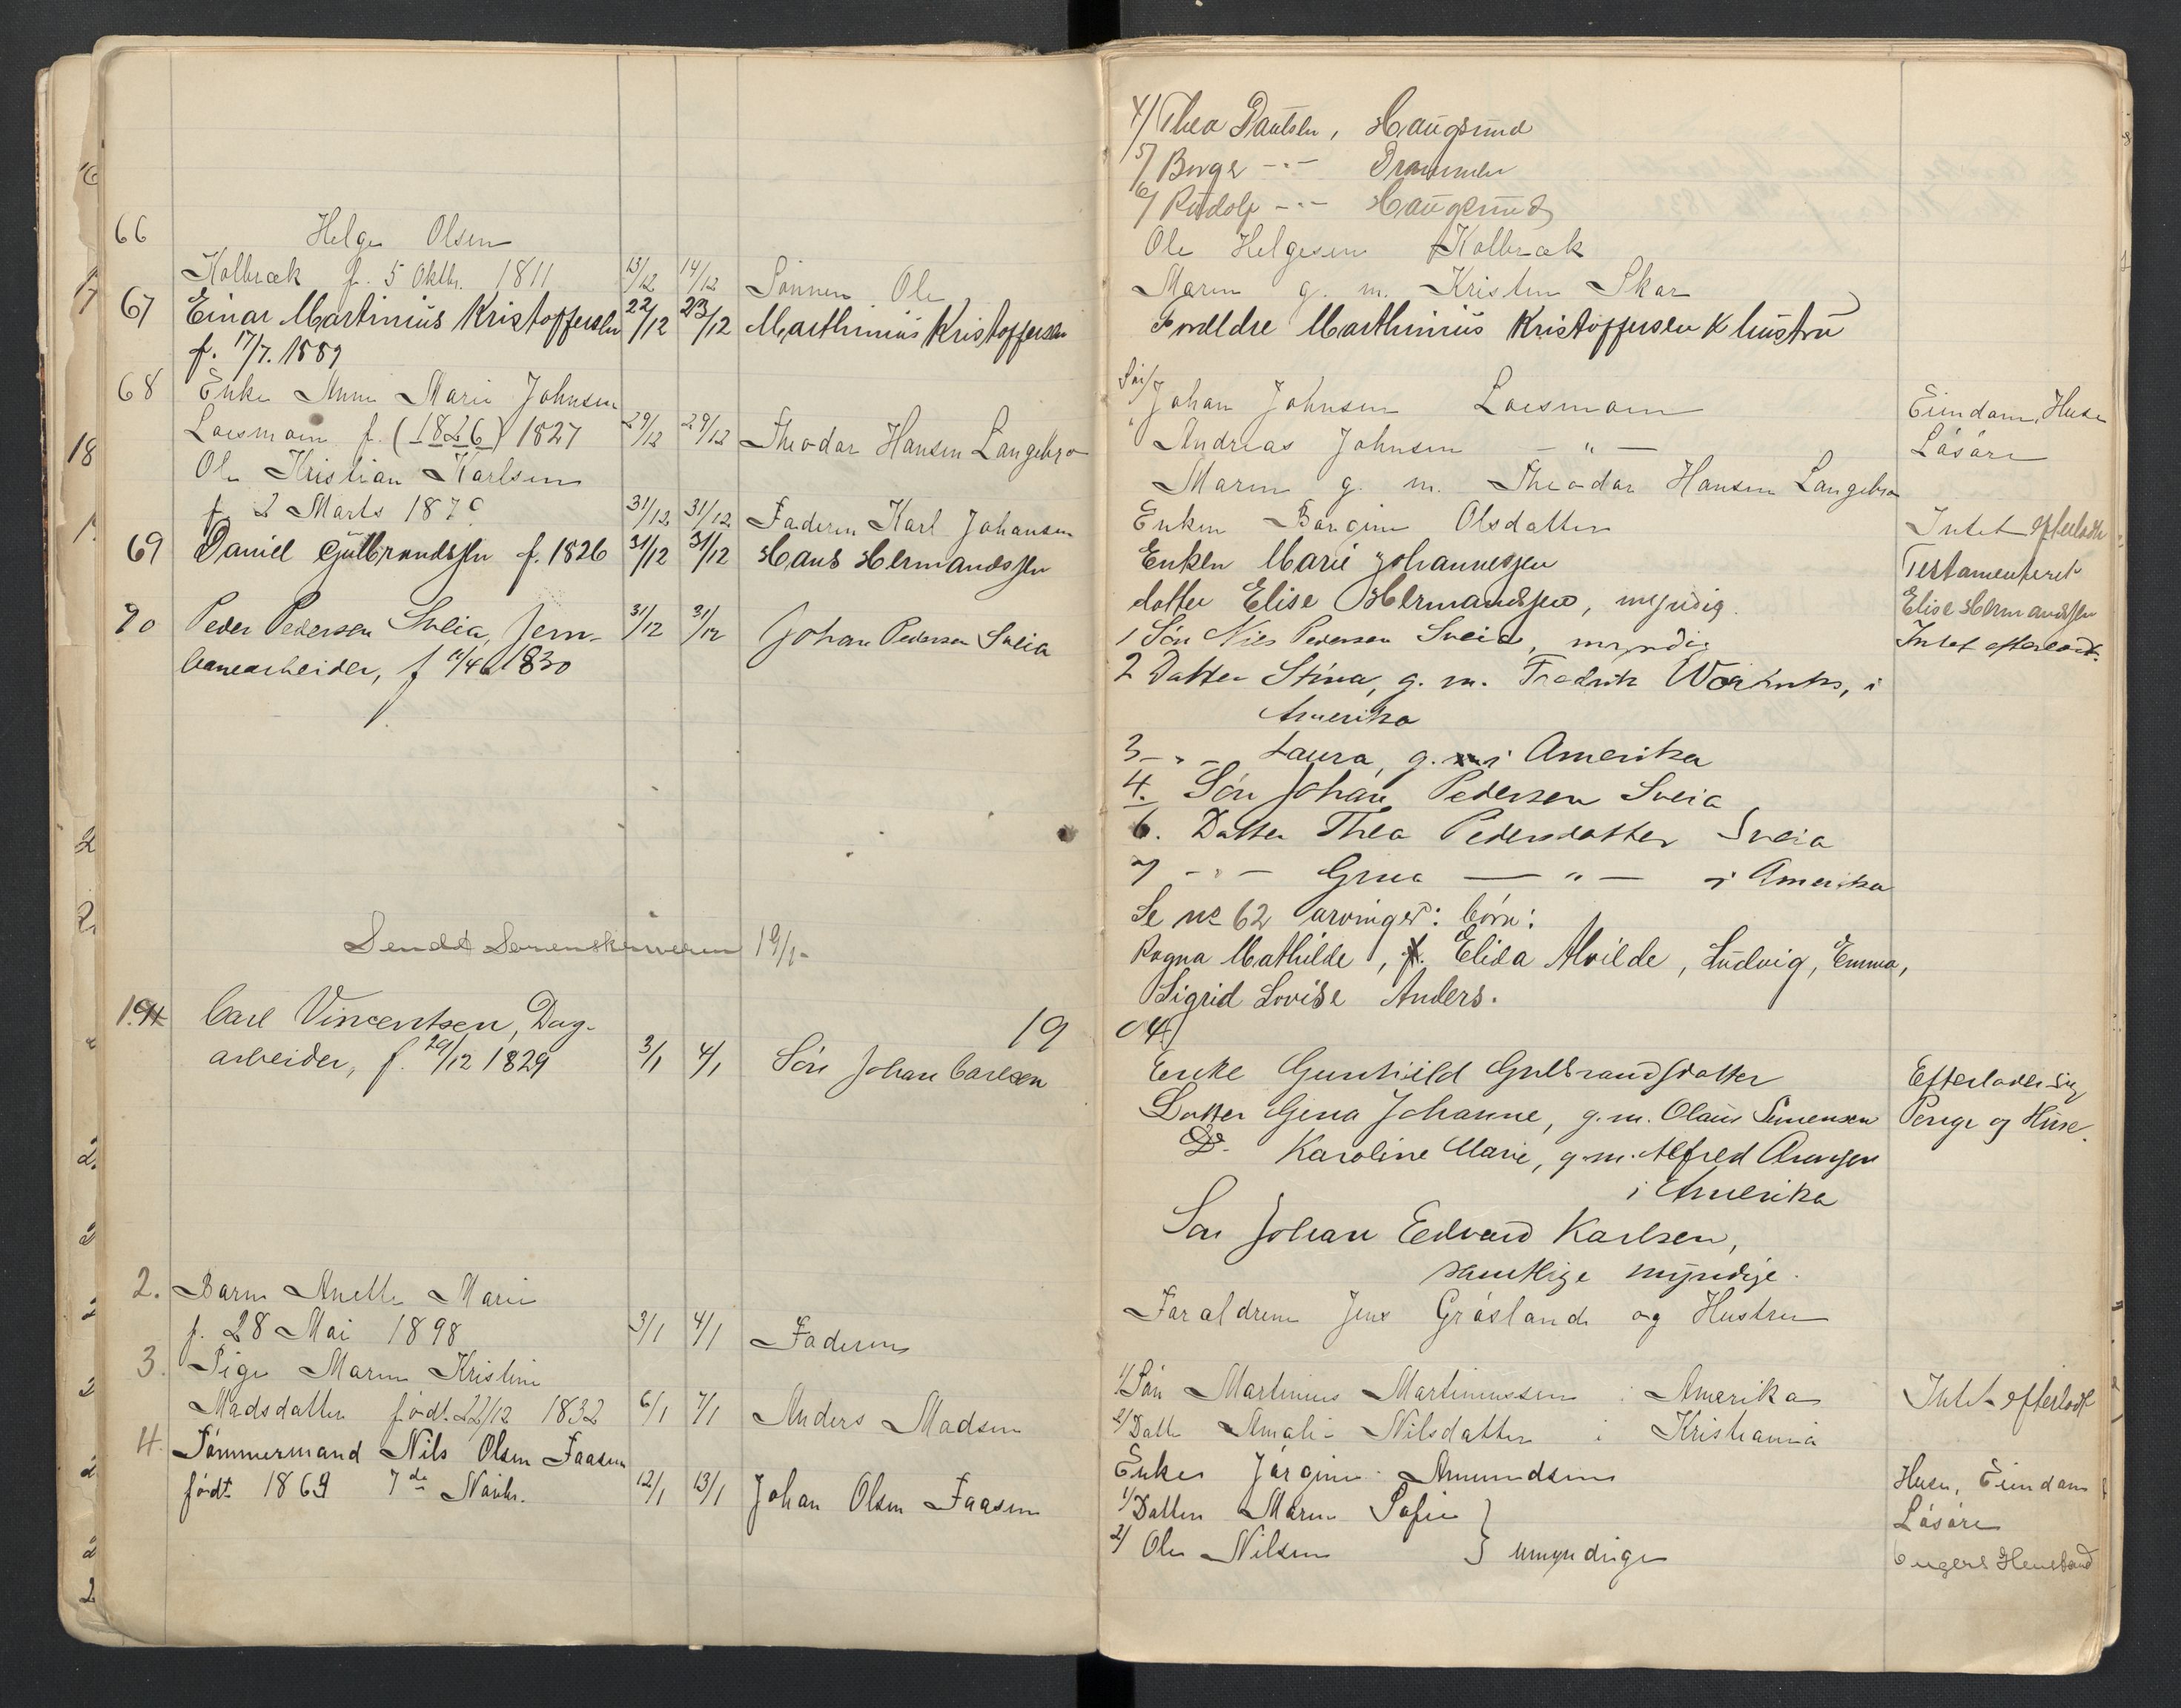 66 Helge Olsen
Kolbræk f. 5 Oktbr. 1811 13/12 14/12 Sönnen Ole
67 Einar Martinius Kristoffersen 22/12 23/12 Marthinius Kristoffersen
f. 17/7. 1889
68 Enke Anne Marie Johnsen
Loesmoen f. (1826) 1827 29/12 29/12 Theodor Hansen Langebro
Ole Kristian Karlsen
f. 2 Marts 1879 31/12 31/12 Faderen Karl Johansen
69 Daniel Gulbrandssen f. 1826 31/12 31/12 Hans Hermandssen
70 Peder Pedersen Sveia, Jern- 31/12 31/12 Johan Pedersen Sveia
banearbeider, f 1830
Sendt Sorenskriveren 19/1-
19
1. Carl Vincentsen, Dag-
arbeider, f. 29/12 1829 3/1 4/1 Sön Johan Carlsen
2. Barn Anette Marie
f. 28 Mai 1898 3/1 4/1 Faderen
3. Pige Maren Kristine
Madsdatter födt. 22/12 1832 6/1 7/1 Anders Madsen
4. Tömmermand Nils Olsen Faasen
födt 1869 7de Novbr. 12/1 13/1 Johan Olsen Faasen
4/ Thea Paulsen, Haugsund
5/ Borge -"- Drammen
6/ Rudolf -"- Haugsund
Ole Helgesen Kolbræk
Maren g. m. Kristen Skar
Foreldre Marthinius Kristoffersen & hustru
Sön/ Johan Johnsen Loesmoen Eiendom, Huse
" Andreas Johnsen - " - Lösöre
Maren g. m. Theodor Hansen Langebro
Enken Borgine Olsdatter Intet efterladt
Enken Marie Johannessen Testamenteret
datter Elise Hermandsen, myndig. Elise Hermandssen
1 Sön Nils Pedersen Sveia, myndig Intet efterladt.
2 Datter Stina, g. m. Fredrik i
Amerika
3 - " - Laura, g. i Amerika
4. Sön Johan Pedersen Sveia
6. Datter Thea Pedersdatter Sveia
7 - " - Grua - " - i Amerika
Se no 62 arvinger: börn:
Ragna Mathilde, Elida Alvilde, Ludvig, Emma,
Sigrid Lovise Anders.
04
Enke Gunhild Gulbrandsdatter Efterlader sig
Datter Gina Johanne, g. m. Olaus Simensen Penge og Huse.
Do. Karoline Marie, g. m. Alfred
i Amerika
Sön Johan Edvard Karlsen,
samtlige myndige.
Foraldrene Jens Gråsland og Hustru
1/ Sön Martinius Martiniussen i Amerika Intet efterladt
2/ Datter Amalie Nilsdatter i Kristiania
Enke Jörgine Amundsen Huse, Eiendom
1/ Datter Maren Sofie Lösöre
2/ Ole Nilsen } umyndige